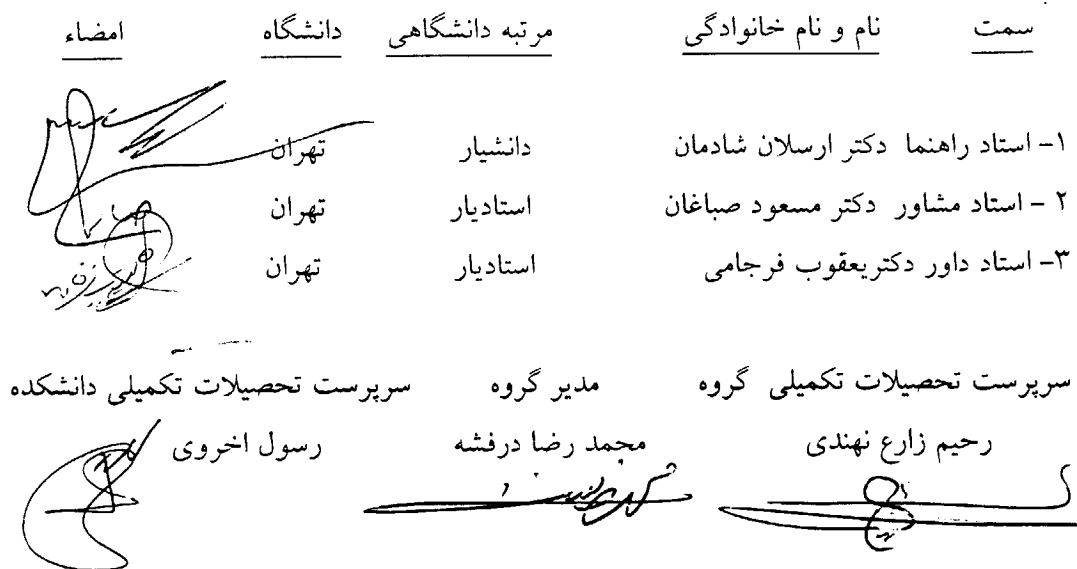 سمت نام و نام خانوادگی مرتبه دانشگاهی دانشگاه امضاء
۱- استاد راهنما دکتر ارسلان شادمان دانشیار تهران
۲ - استاد مشاور دکتر مسعود صباغان استادیار تهران
۳- استاد داور دکتریعقوب فرجامی استادیار تهران
سرپرست تحصیلات تکمیلی گروه مدیر گروه سرپرست تحصیلات تکمیلی دانشکده
رحیم زارع نهندی محمد رضا درفشه رسول اخروی